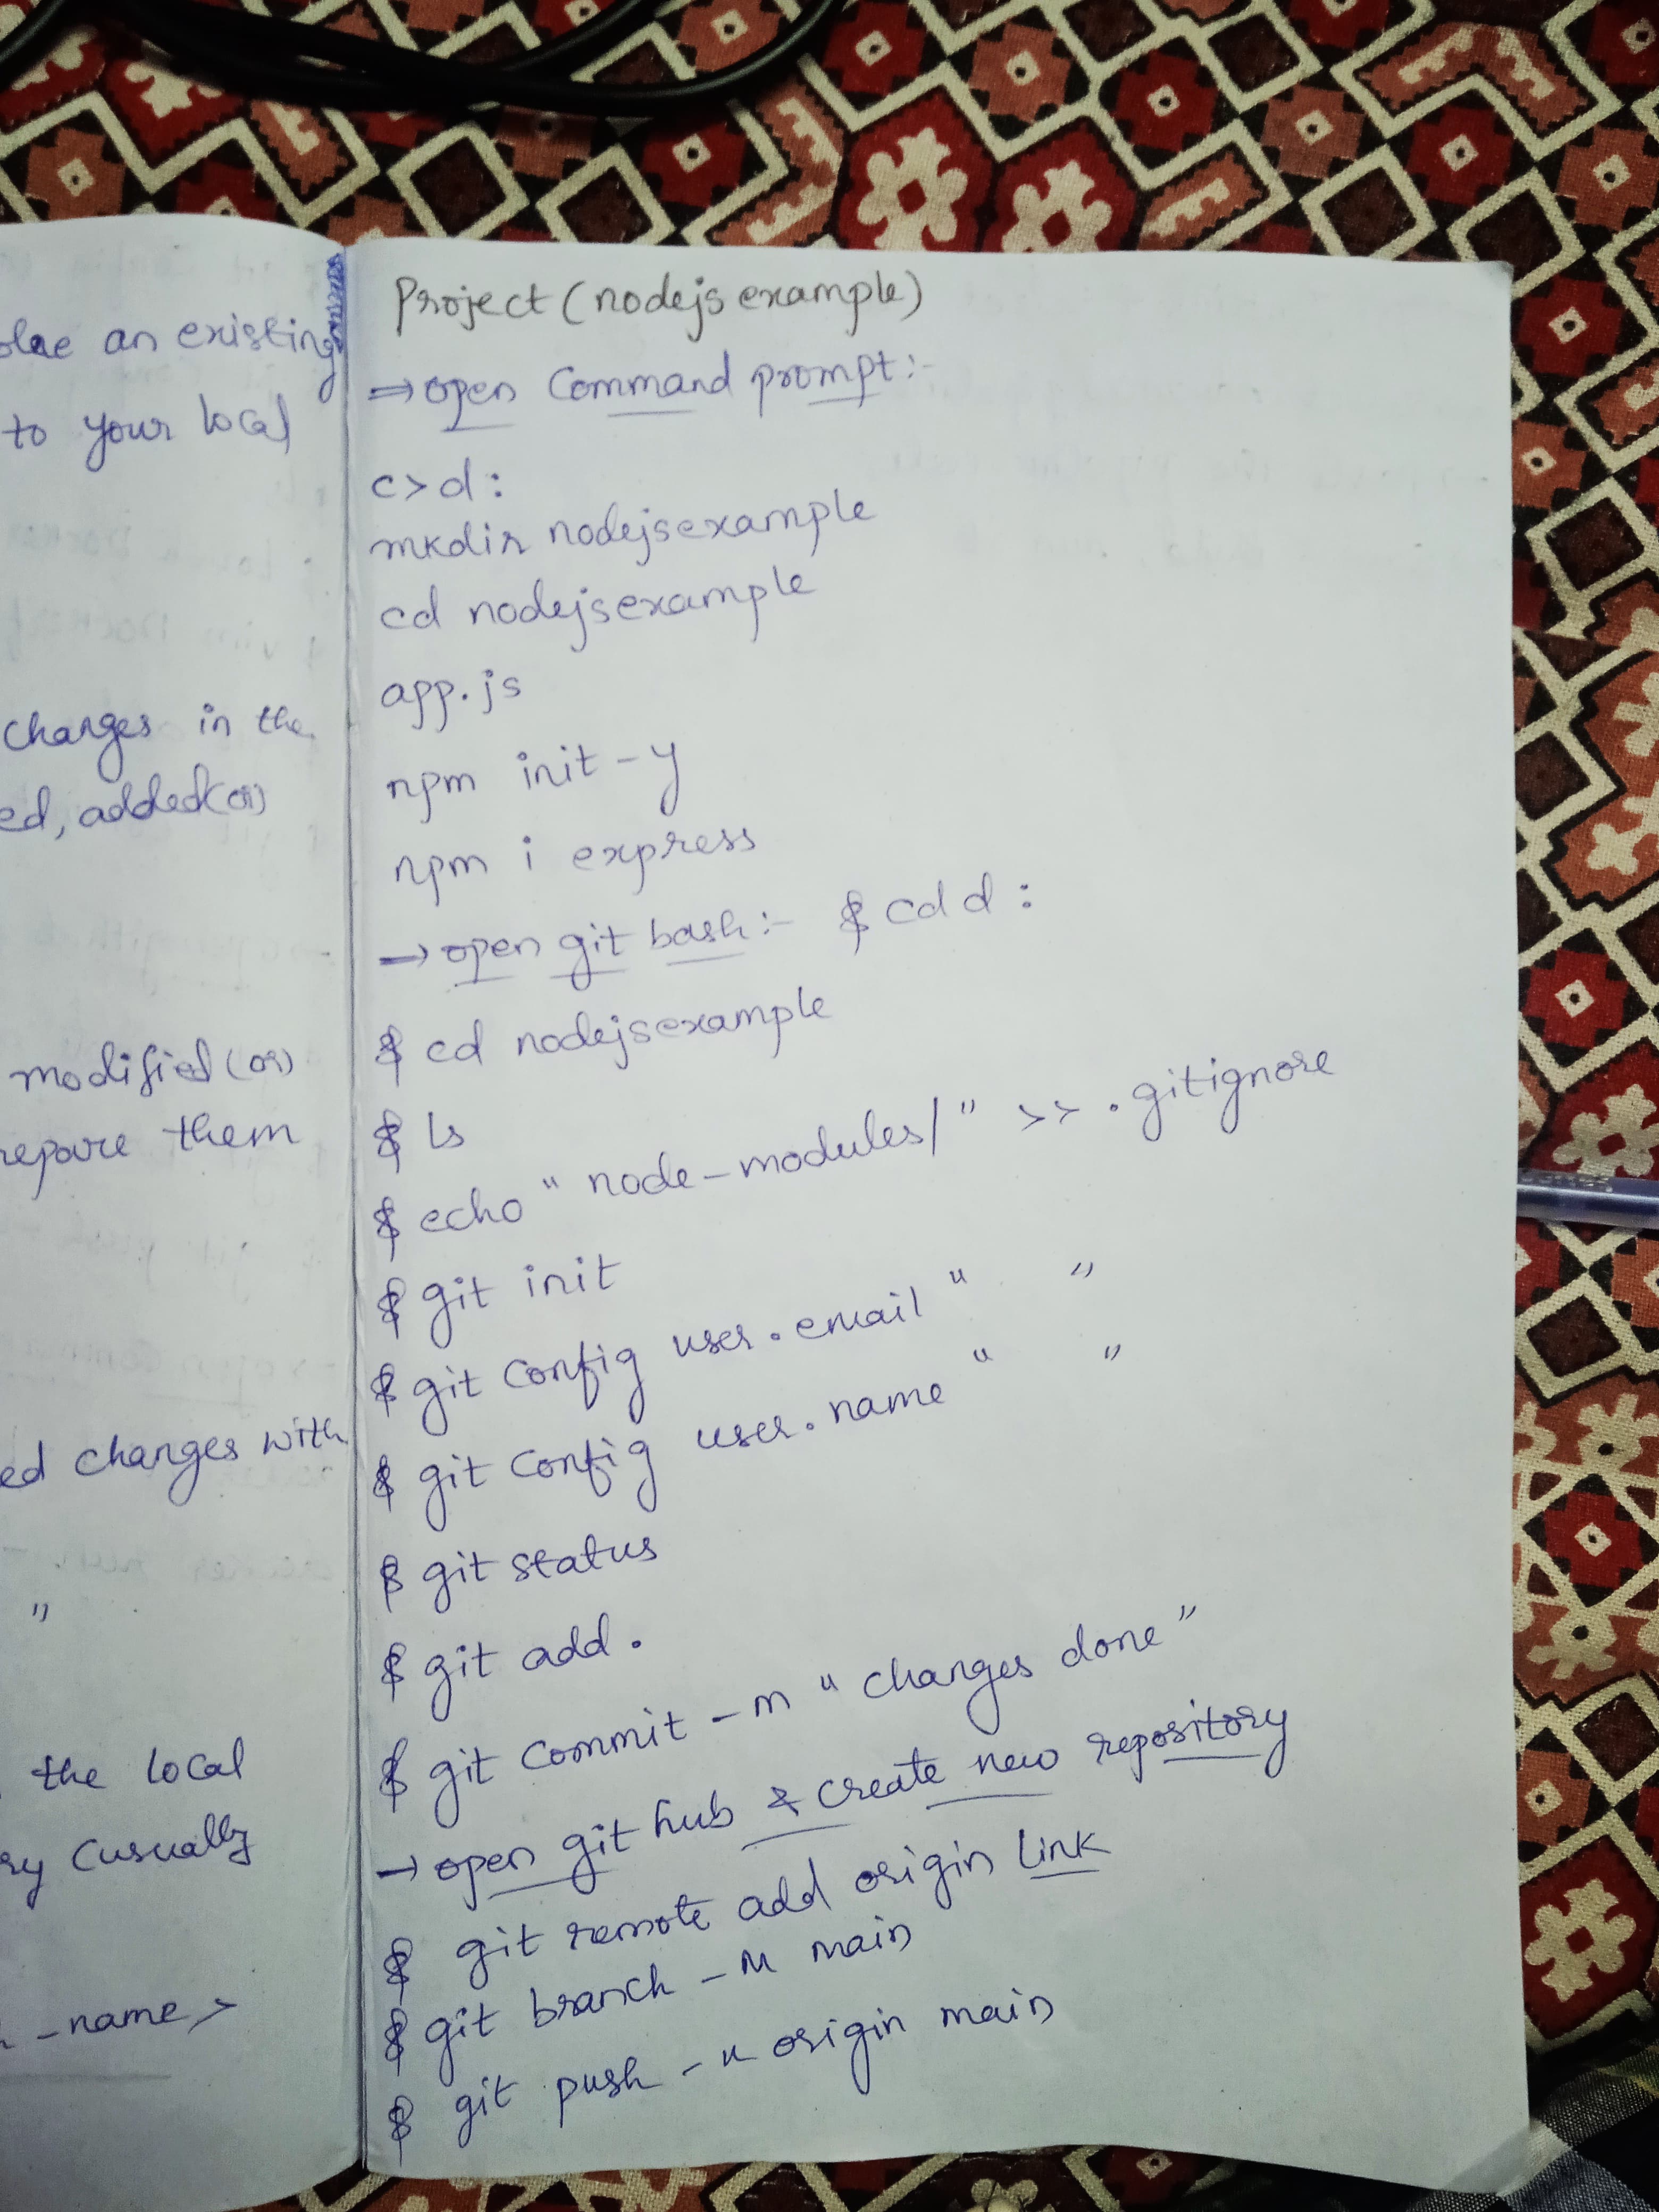 an existing
to your local
changes in the
ed, added(or)
modified (or)
them
ed changes with
"
the local
(usually
-name>
Project (nodejs example)
⇒ open Command prompt:-
c>d:
mkdir nodejsexample
cd nodejsexample
app.js
npm init -y
npm i express
→ open git bash:- $ cd d:
$ cd nodejsexample
$ ls
$ echo "node-modules/" >> .gitignore
$ git init
$ git config user.email "     "
$ git config user.name "     "
$ git status
$ git add .
$ git commit -m "changes done"
→ open git hub & create new repository
$ git remote add origin link
$ git branch -M main
$ git push -u origin main